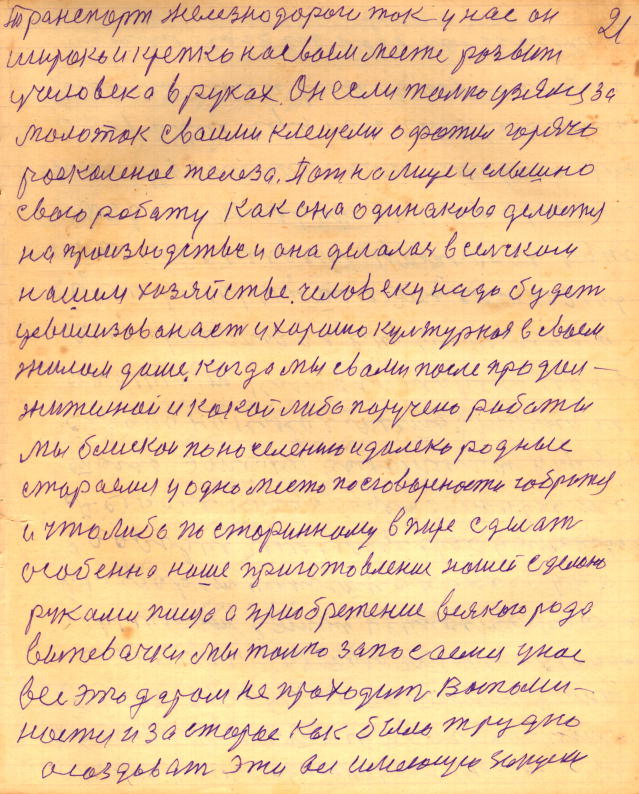 21
Транспорт железнодорог ток у нас он
широко и крепко на своем месте розвит
у человека в руках. Он если толко узяця за
молоток своими клещеми одфотил горячо
роскаленое железа. Пот на лице и слышно
свою работу как она одинаково делаетя
на производстве и она делалоя в сельском
нашем хозяйстве. человеку надо будет
цевилизованаст и хорошо културноя в своем
жилом доме. когда мы свами после продол-
жителной и какой либо поручено работы
мы близкои по поселению и далеко родные
стараемя у одно место по сговорности собратя
и что либо по сторинному в мире сделат
особенно наше приготовление нашей сделано
руками пища а приобретение всякого рода
выпевачки мы толко запосаемя у нас
все это даром не проходит. Воспоми-
ности и за старое как было трудно
осоздоват эти все имеющую